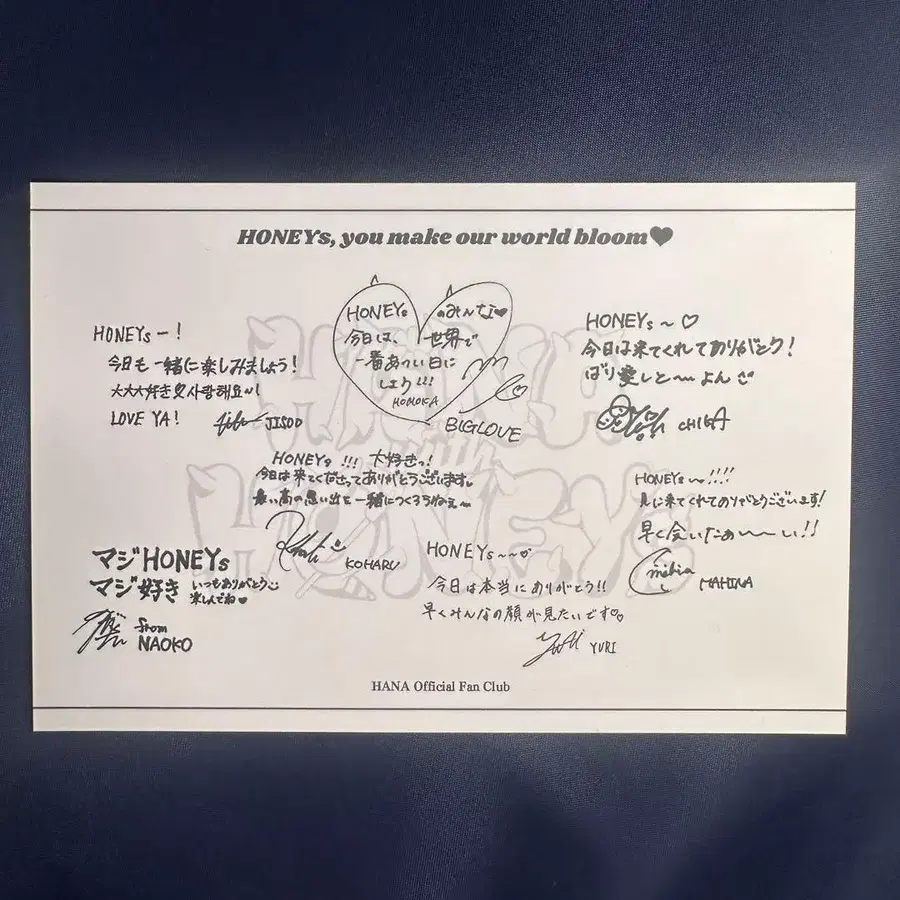 HONEYs, you make our world bloom♥
HONEYs ー!
今日も一緒に楽しみましょう!
大大大好き♡사랑해요~!
LOVE YA!
JISOO
HONEYsのみんな♥
今日は、世界で
一番あつい日に
しよう!!!
MOMOKA
BIGLOVE
HONEYs〜♡
今日は来てくれてありがとう!
ばり愛しと〜よん
CHIKA
HONEYs !!! 大好きっ!
今日は来てくださってありがとうございます。
最っ高の思い出を一緒につくろうねぇ〜
KOHARU
HONEYs〜!!!!
見に来てくれてありがとうございます!
早く会いたぁ〜〜い!!
mahina
MAHINA
マジHONEYs
マジ好き
いつもありがとう
楽しんでね♥
from
NAOKO
HONEYs~~♡
今日は本当にありがとう!!
早くみんなの顔が見たいです
YURI
HANA with HONEYs
HANA Official Fan Club